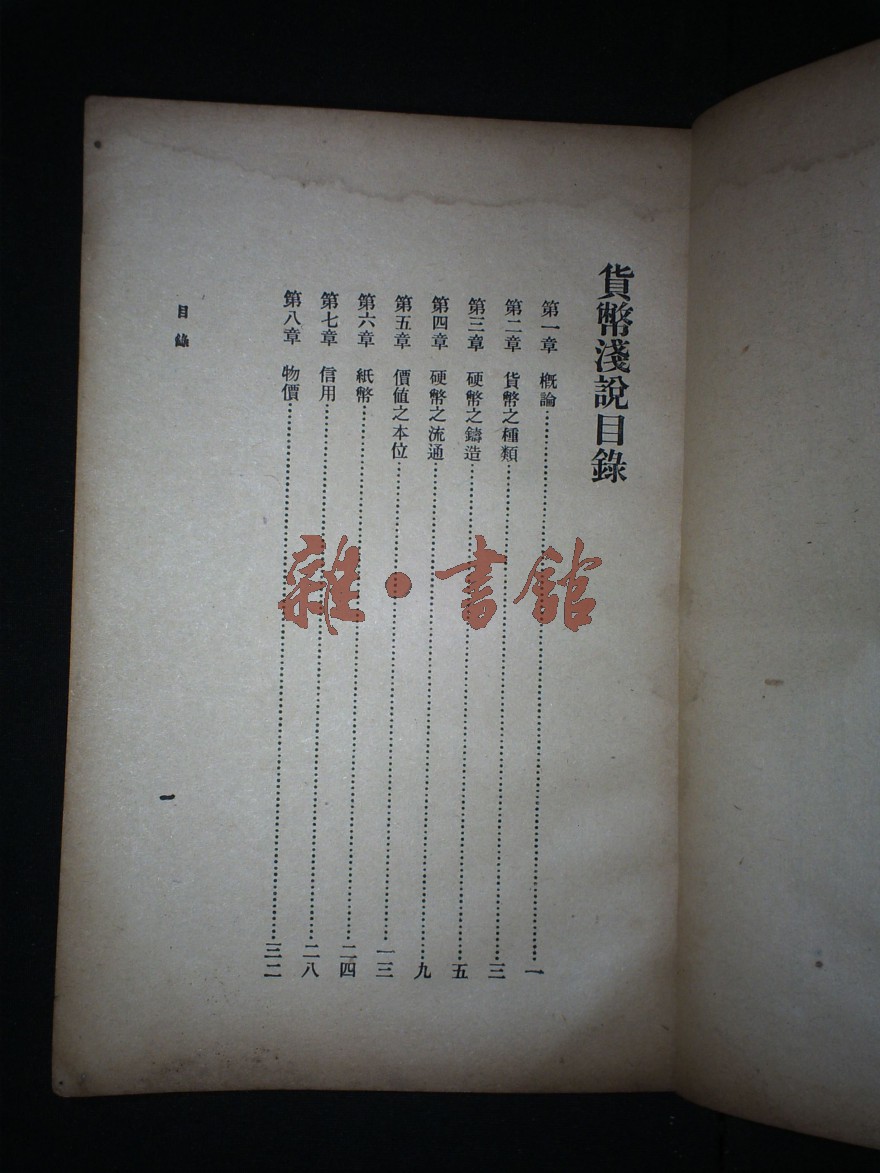 貨幣淺說目錄
第一章 概論……一
第二章 貨幣之種類……三
第三章 硬幣之鑄造……五
第四章 硬幣之流通……九
第五章 價值之本位……一三
第六章 紙幣……二四
第七章 信用……二八
第八章 物價……三二
目錄
一
雜·書館